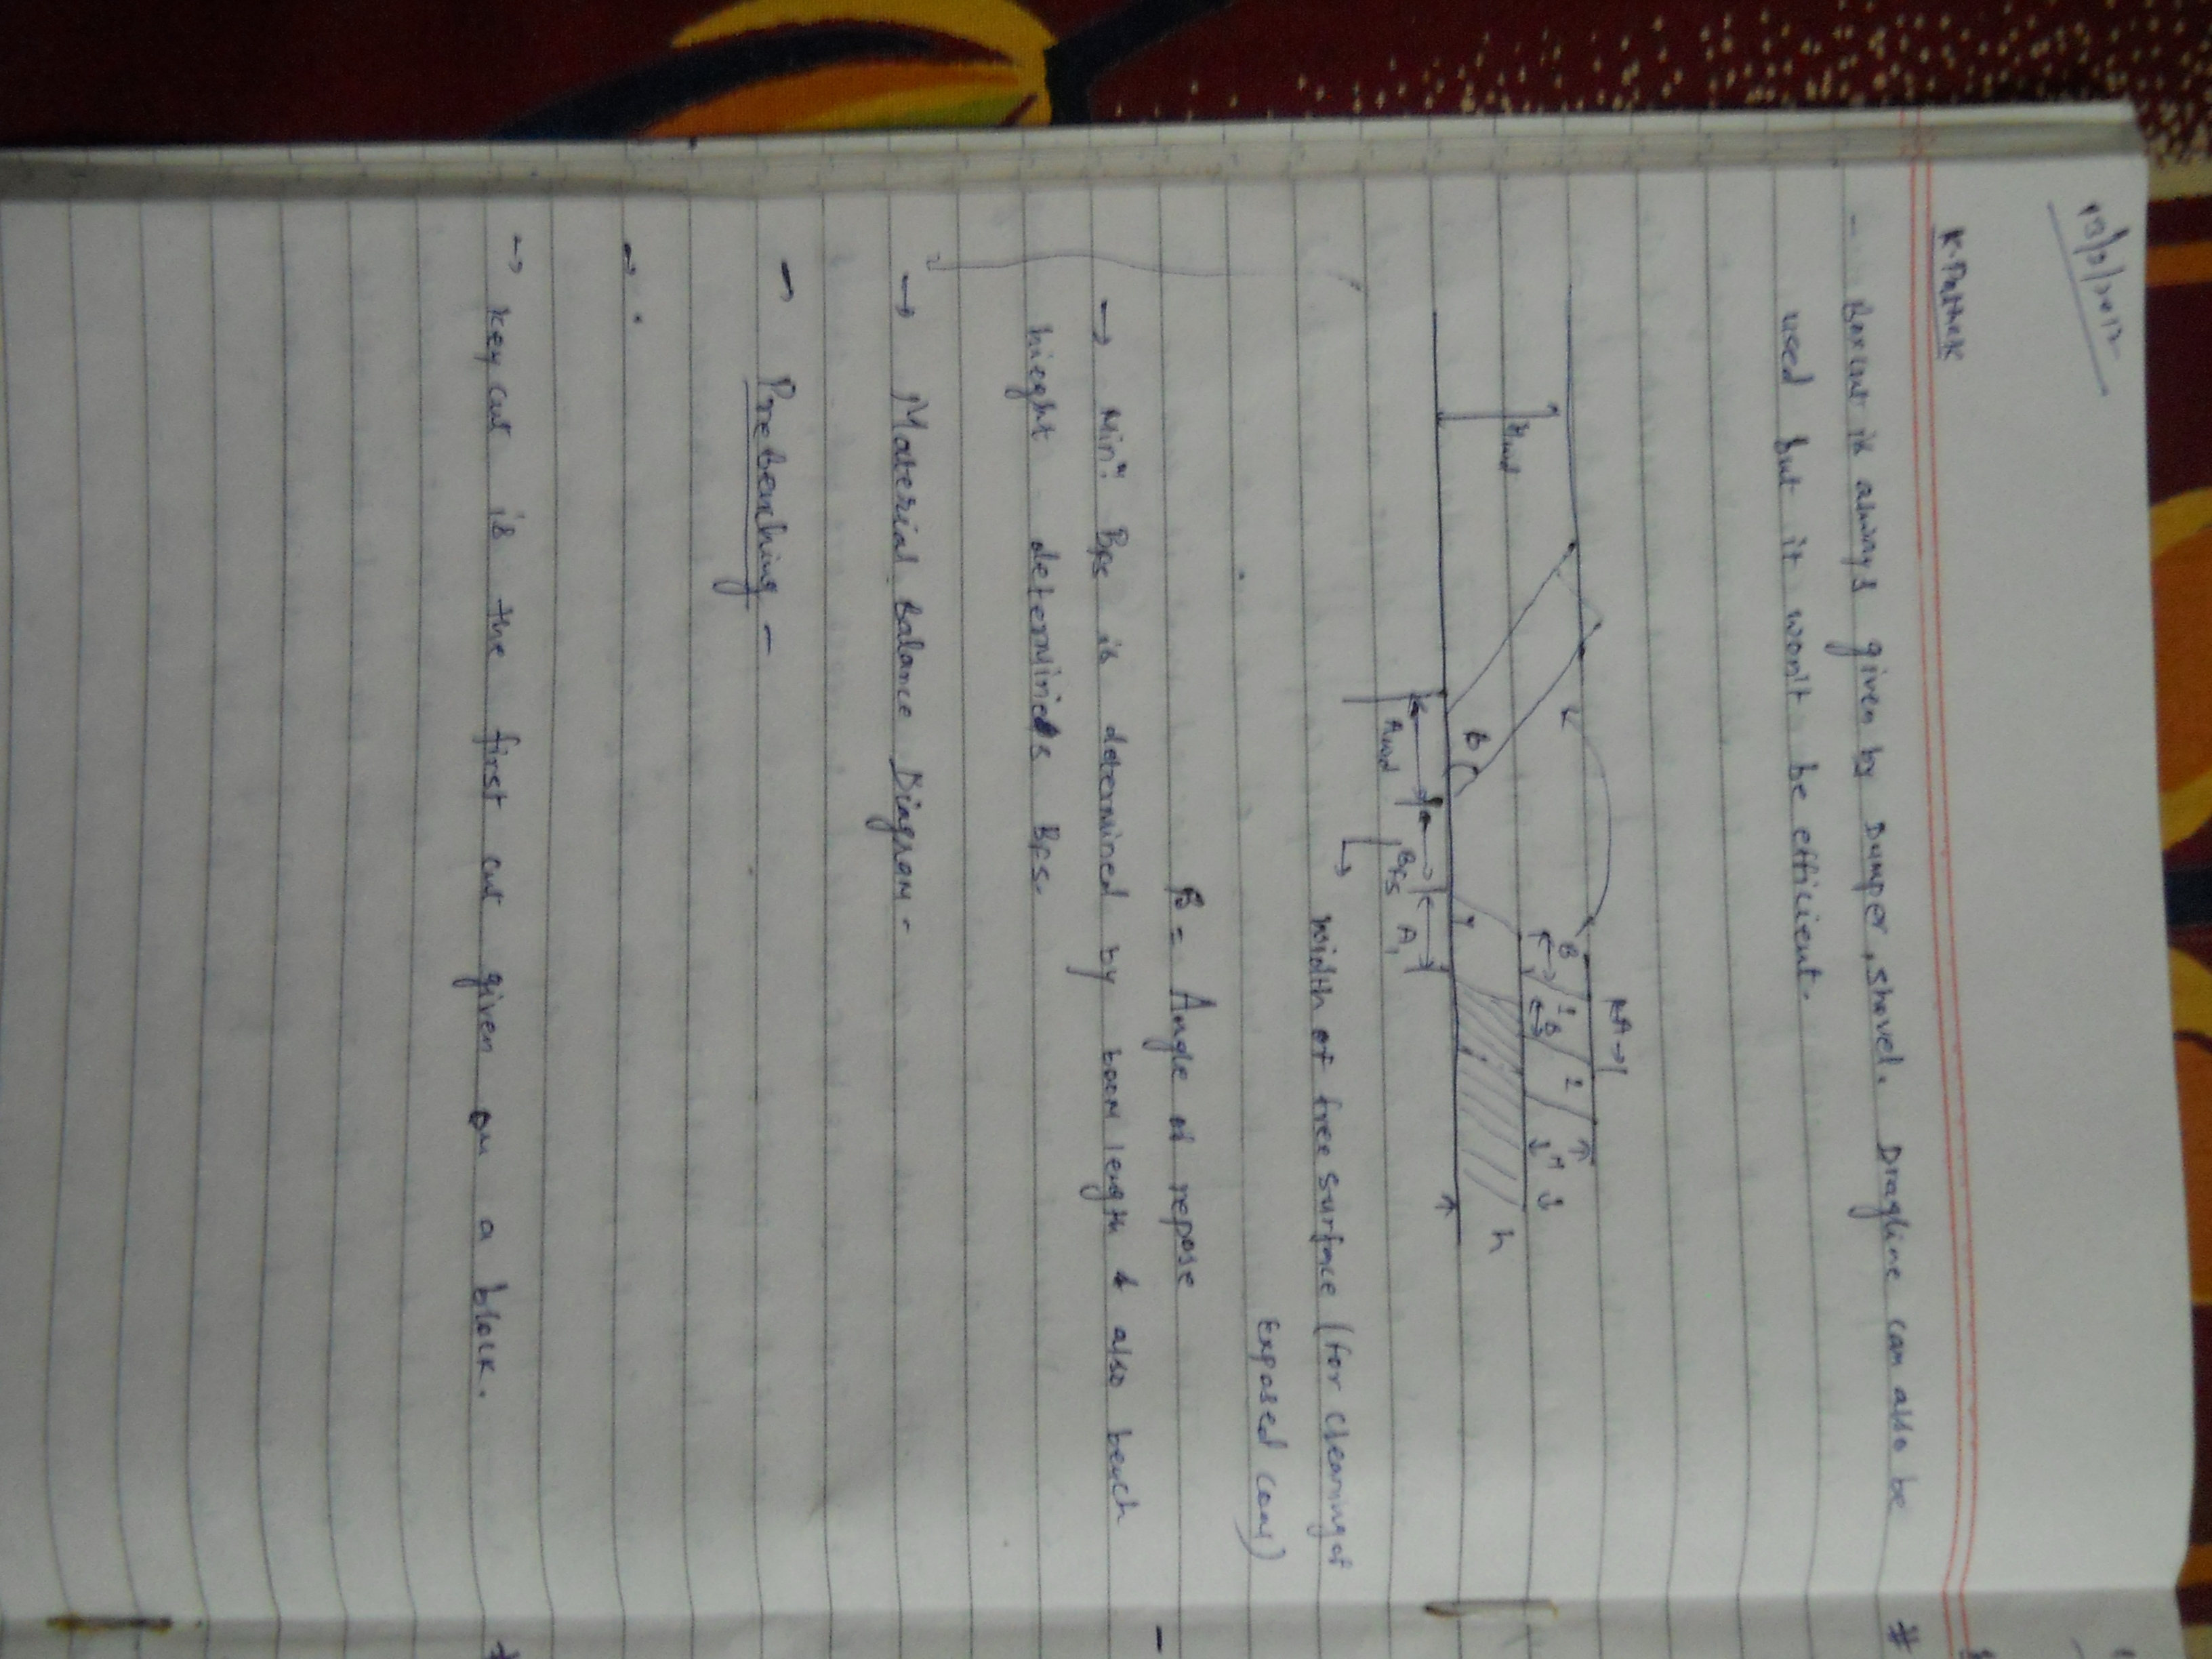 13/2/2012
K. Pathak
- Boxcut is always given by Dumper, shovel. Dragline can also be
used but it won't be efficient.
K A →|
B 1 B 2 H
Hwd
h
B
Awd Bfs A1
↳ width of free surface (for cleaning of
Exposed coal)
B = Angle of repose
→ Minm. Bfs is determined by boom length & also bench
hieght determinies Bfs.
→ Material Balance Diagram -
- Prebenching -
→ .
→ key cut is the first cut given on a block.
#